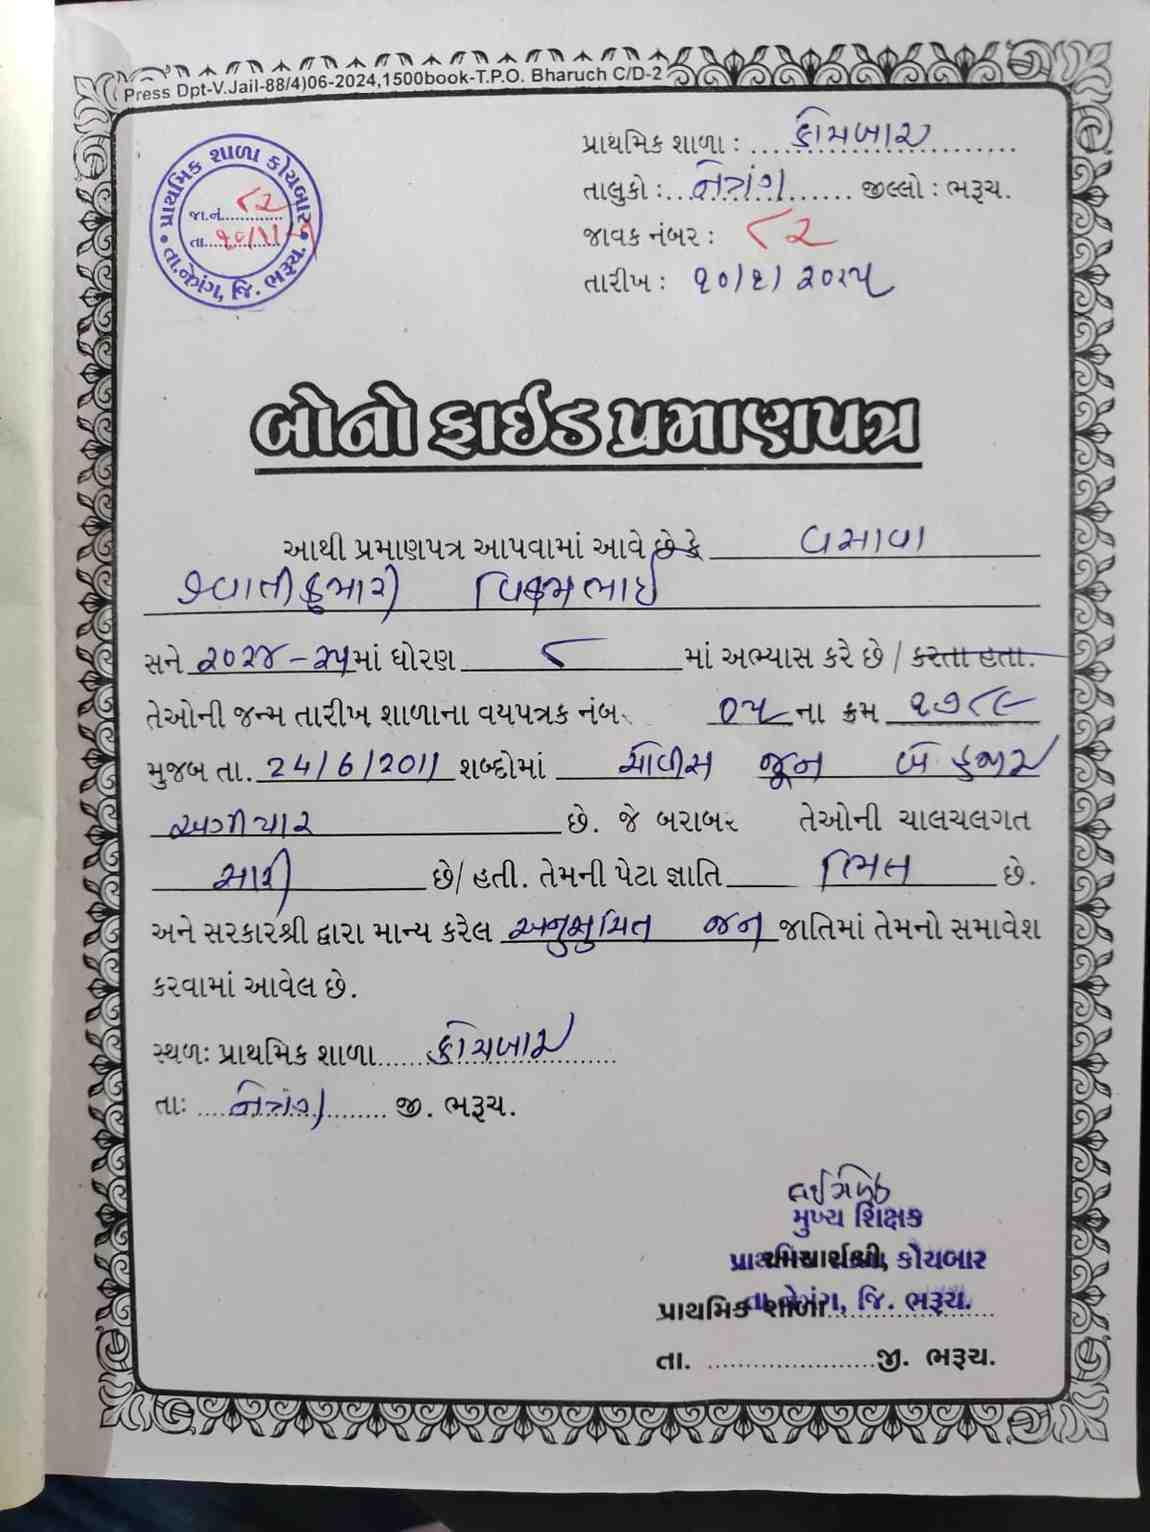 Press Dpt-V.Jail-88/4)06-2024,1500book-T.P.O. Bharuch C/D-2
પ્રાથમિક શાળા કોયબાર
જા.નં. ૮૨
તા.
તા.નેત્રંગ, જિ. ભરૂચ.
પ્રાથમિક શાળા : કોયબાર
તાલુકો : નેત્રંગ જીલ્લો : ભરૂચ.
જાવક નંબર : ૮૨
તારીખ : ૧૦/૧/૨૦૨૫
બોનોફાઈડ પ્રમાણપત્ર
આથી પ્રમાણપત્ર આપવામાં આવે છે કે વસાવા
સ્વાતીકુમારી વિક્રમભાઈ
સને ૨૦૨૪-૨૫ માં ધોરણ ૮ માં અભ્યાસ કરે છે / કરતા હતા.
તેઓની જન્મ તારીખ શાળાના વયપત્રક નંબર ૦૫ ના ક્રમ ૧૭૮૯
મુજબ તા. 24/6/2011 શબ્દોમાં ચોવીસ જૂન બે હજાર
અગીયાર છે. જે બરાબર તેઓની ચાલચલગત
સારી છે/ હતી. તેમની પેટા જ્ઞાતિ ભિલ છે.
અને સરકારશ્રી દ્વારા માન્ય કરેલ અનુસુચિત જન જાતિમાં તેમનો સમાવેશ
કરવામાં આવેલ છે.
સ્થળ: પ્રાથમિક શાળા કોયબાર
તા: નેત્રંગ જી. ભરૂચ.
મુખ્ય શિક્ષક
આચાર્યશ્રી, કોયબાર
તા.નેત્રંગ, જિ. ભરૂચ.
પ્રાથમિક શાળા
તા. જી. ભરૂચ.